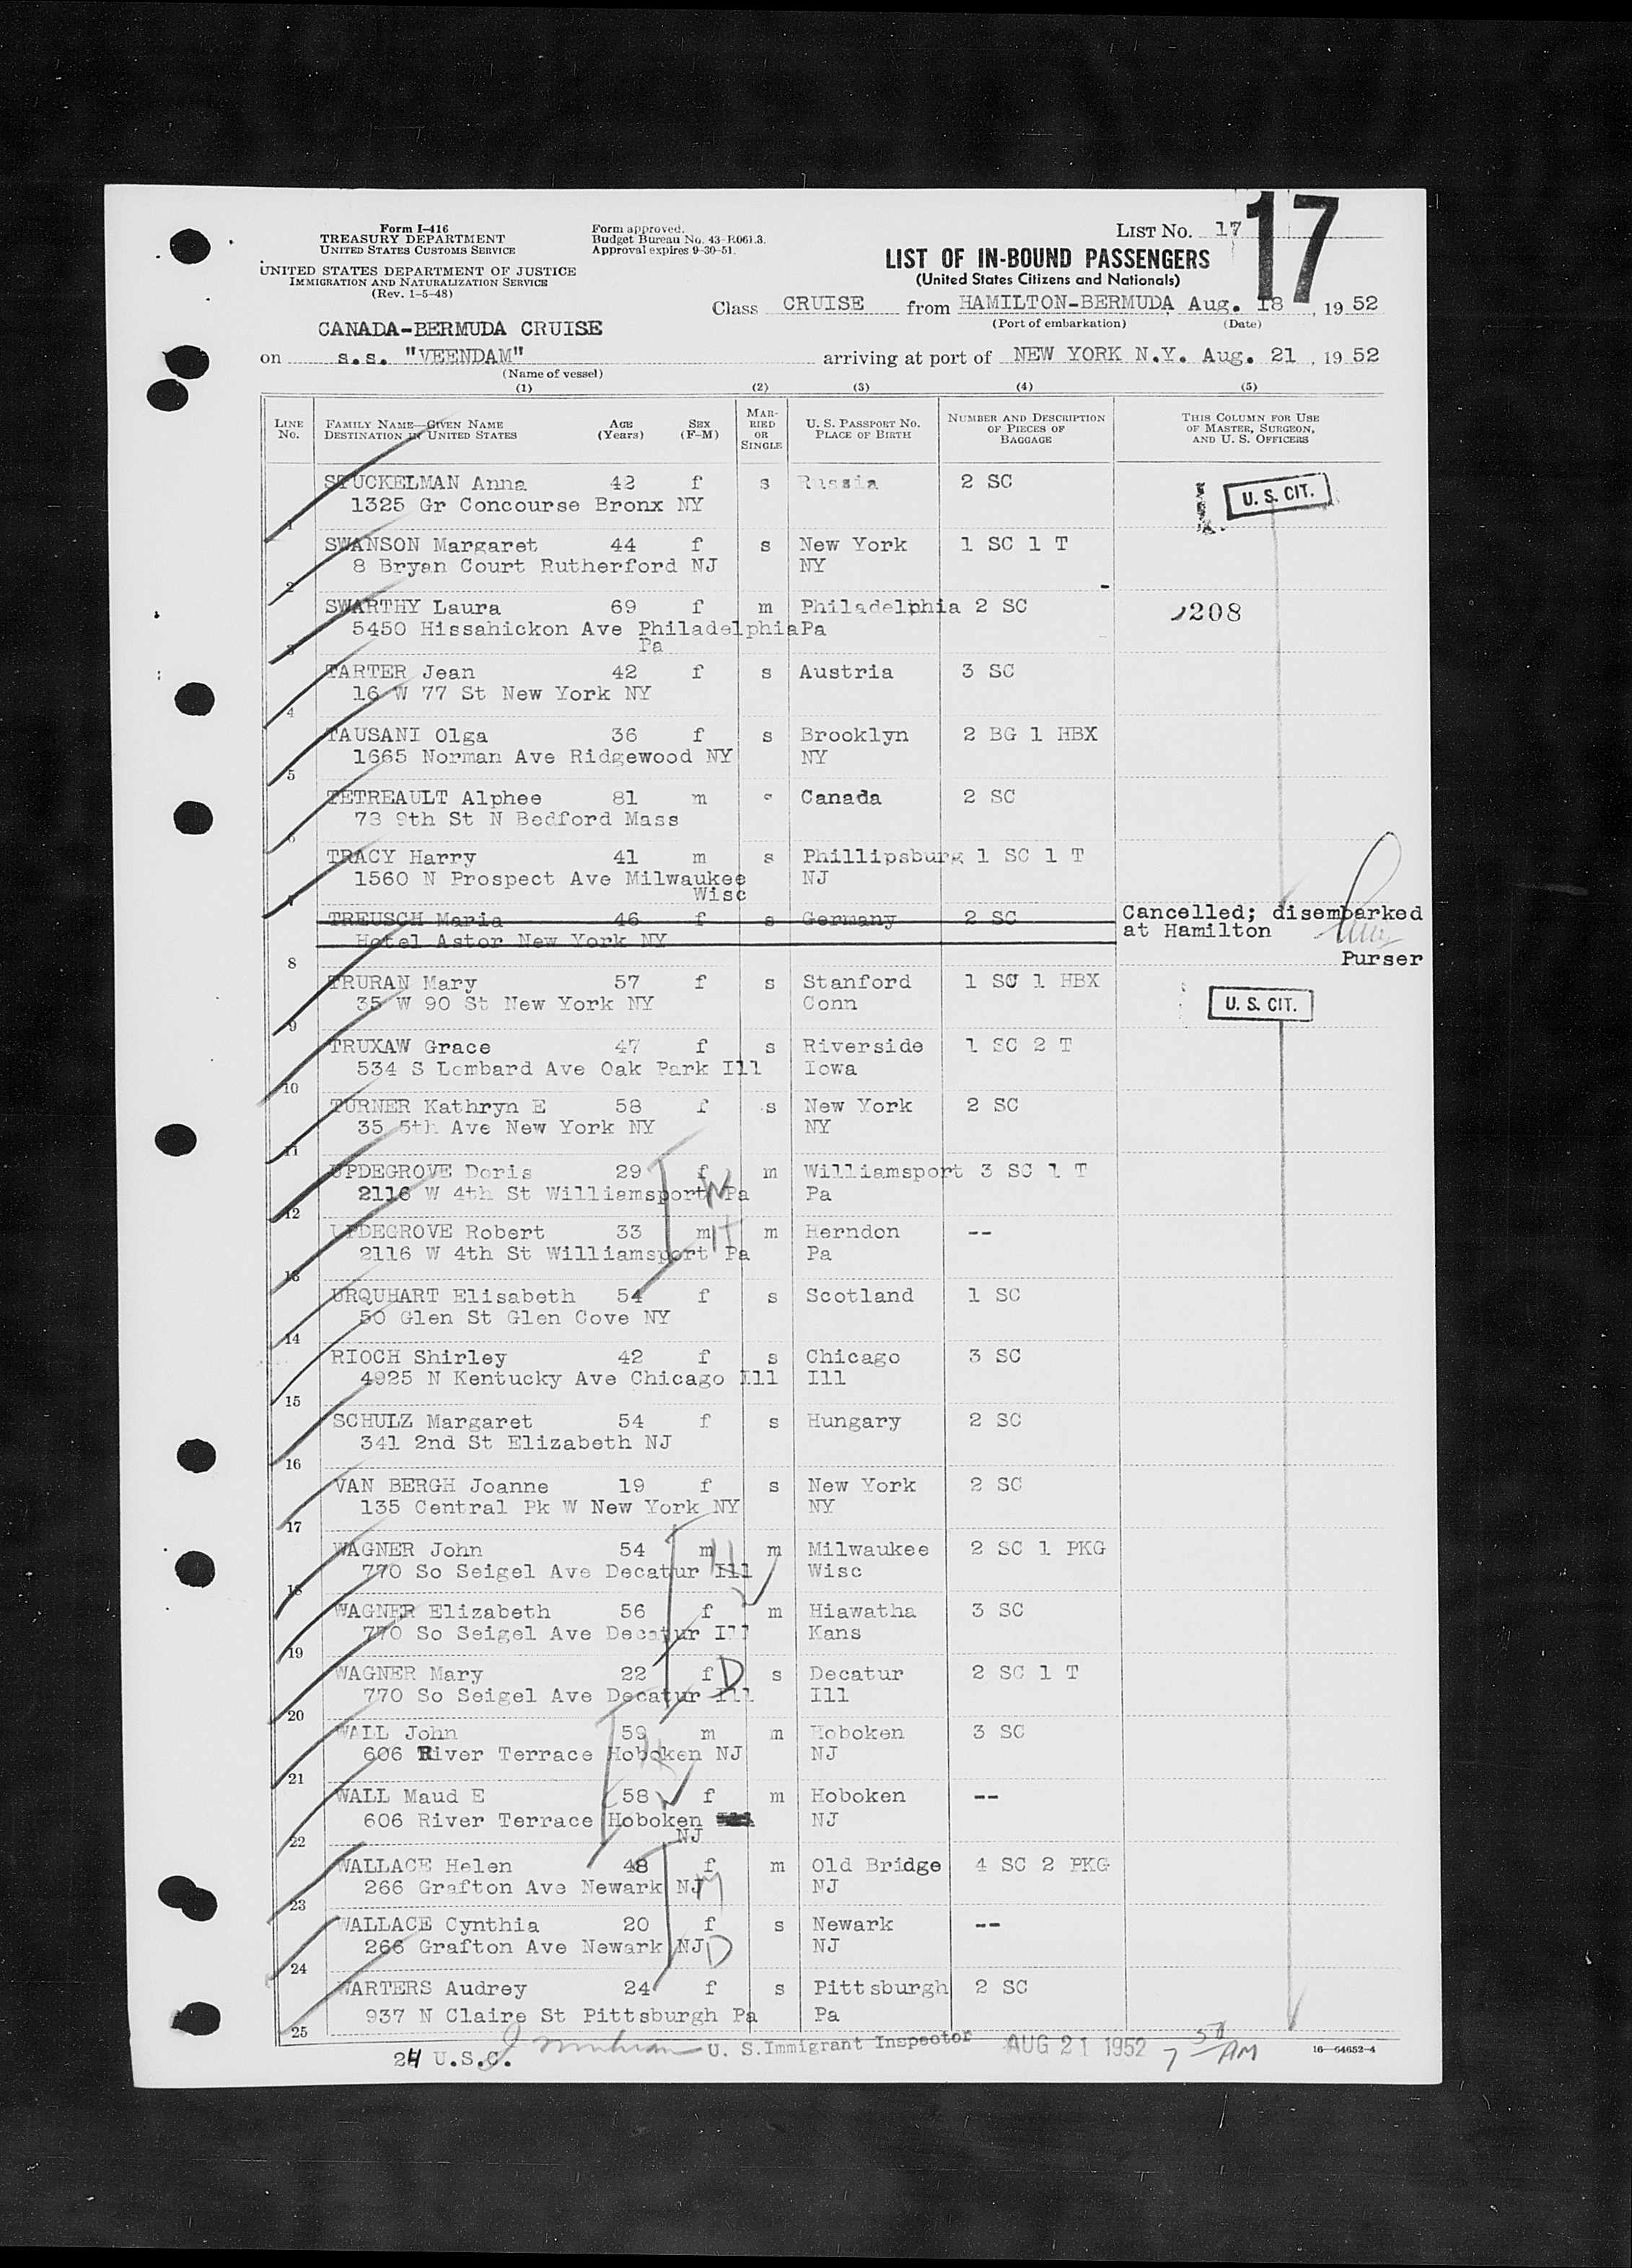 Form I-416
TREASURY DEPARTMENT
UNITED STATES CUSTOMS SERVICE
UNITED STATES DEPARTMENT OF JUSTICE
IMMIGRATION AND NATURALIZATION SERVICE
(Rev. 1-5-48)
Form approved.
Budget Bureau No. 43-R061.3.
Approval expires 9-30-51.
LIST No. 17
17
LIST OF IN-BOUND PASSENGERS
(United States Citizens and Nationals)
Class CRUISE from HAMILTON-BERMUDA, Aug. 18, 1952
(Port of embarkation) (Date)
CANADA-BERMUDA CRUISE
on s.s. "VEENDAM" arriving at port of NEW YORK N.Y. Aug. 21, 1952
(Name of vessel)
(1) (2) (3) (4) (5)
LINE No. FAMILY NAME—GIVEN NAME DESTINATION IN UNITED STATES AGE (Years) SEX (F-M) MARRIED OR SINGLE U. S. PASSPORT NO. PLACE OF BIRTH NUMBER AND DESCRIPTION OF PIECES OF BAGGAGE THIS COLUMN FOR USE OF MASTER, SURGEON, AND U. S. OFFICERS
STUCKELMAN Anna 42 f s Russia 2 SC U. S. CIT.
1 1325 Gr Concourse Bronx NY
SWANSON Margaret 44 f s New York 1 SC 1 T
2 8 Bryan Court Rutherford NJ NY
SWARTHY Laura 69 f m Philadelphia 2 SC 208
3 5450 Hissahickon Ave Philadelphia Pa
Pa
TARTER Jean 42 f s Austria 3 SC
4 16 W 77 St New York NY
TAUSANI Olga 36 f s Brooklyn 2 BG 1 HBX
5 1665 Norman Ave Ridgewood NY NY
TETREAULT Alphee 81 m s Canada 2 SC
6 73 9th St N Bedford Mass
TRACY Harry 41 m s Phillipsburg 1 SC 1 T
7 1560 N Prospect Ave Milwaukee NJ
Wisc
TREUSCH Maria 46 f s Germany 2 SC Cancelled; disembarked
8 Hotel Astor New York NY at Hamilton
Purser
TRURAN Mary 57 f s Stanford 1 SC 1 HBX U. S. CIT.
9 35 W 90 St New York NY Conn
TRUXAW Grace 47 f s Riverside 1 SC 2 T
10 534 S Lombard Ave Oak Park Ill Iowa
TURNER Kathryn E 58 f s New York 2 SC
11 35 5th Ave New York NY NY
UPDEGROVE Doris 29 f m Williamsport 3 SC 1 T
12 2116 W 4th St Williamsport Pa W Pa
UPDEGROVE Robert 33 m H m Herndon --
13 2116 W 4th St Williamsport Pa Pa
URQUHART Elisabeth 54 f s Scotland 1 SC
14 50 Glen St Glen Cove NY
RIOCH Shirley 42 f s Chicago 3 SC
15 4925 N Kentucky Ave Chicago Ill Ill
SCHULZ Margaret 54 f s Hungary 2 SC
16 341 2nd St Elizabeth NJ
VAN BERGH Joanne 19 f s New York 2 SC
17 135 Central Pk W New York NY NY
WAGNER John 54 m H m Milwaukee 2 SC 1 PKG
18 770 So Seigel Ave Decatur Ill Wisc
WAGNER Elizabeth 56 f m Hiawatha 3 SC
19 770 So Seigel Ave Decatur Ill Kans
WAGNER Mary 22 f D s Decatur 2 SC 1 T
20 770 So Seigel Ave Decatur Ill Ill
WALL John 59 m m Hoboken 3 SC
21 606 River Terrace Hoboken NJ H NJ
WALL Maud E 58 W f m Hoboken --
22 606 River Terrace Hoboken NJ
NJ
WALLACE Helen 48 f m Old Bridge 4 SC 2 PKG
23 266 Grafton Ave Newark NJ M NJ
WALLACE Cynthia 20 f s Newark --
24 266 Grafton Ave Newark NJ D NJ
WARTERS Audrey 24 f s Pittsburgh 2 SC
25 937 N Claire St Pittsburgh Pa Pa
24 U.S.C. U. S. Immigrant Inspector AUG 21 1952 7 50 AM 16—64652-4